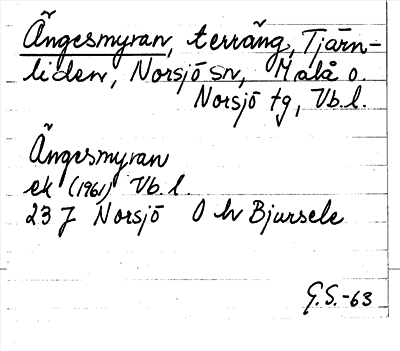 Ängesmyran, terräng, Tjärn-
liden, Norsjö sn, Malå o.
Norsjö tg, Vb.l.
Ängesmyran
ek (1961) Vb.l.
23 J Norsjö O h Bjursele
G.S.-63